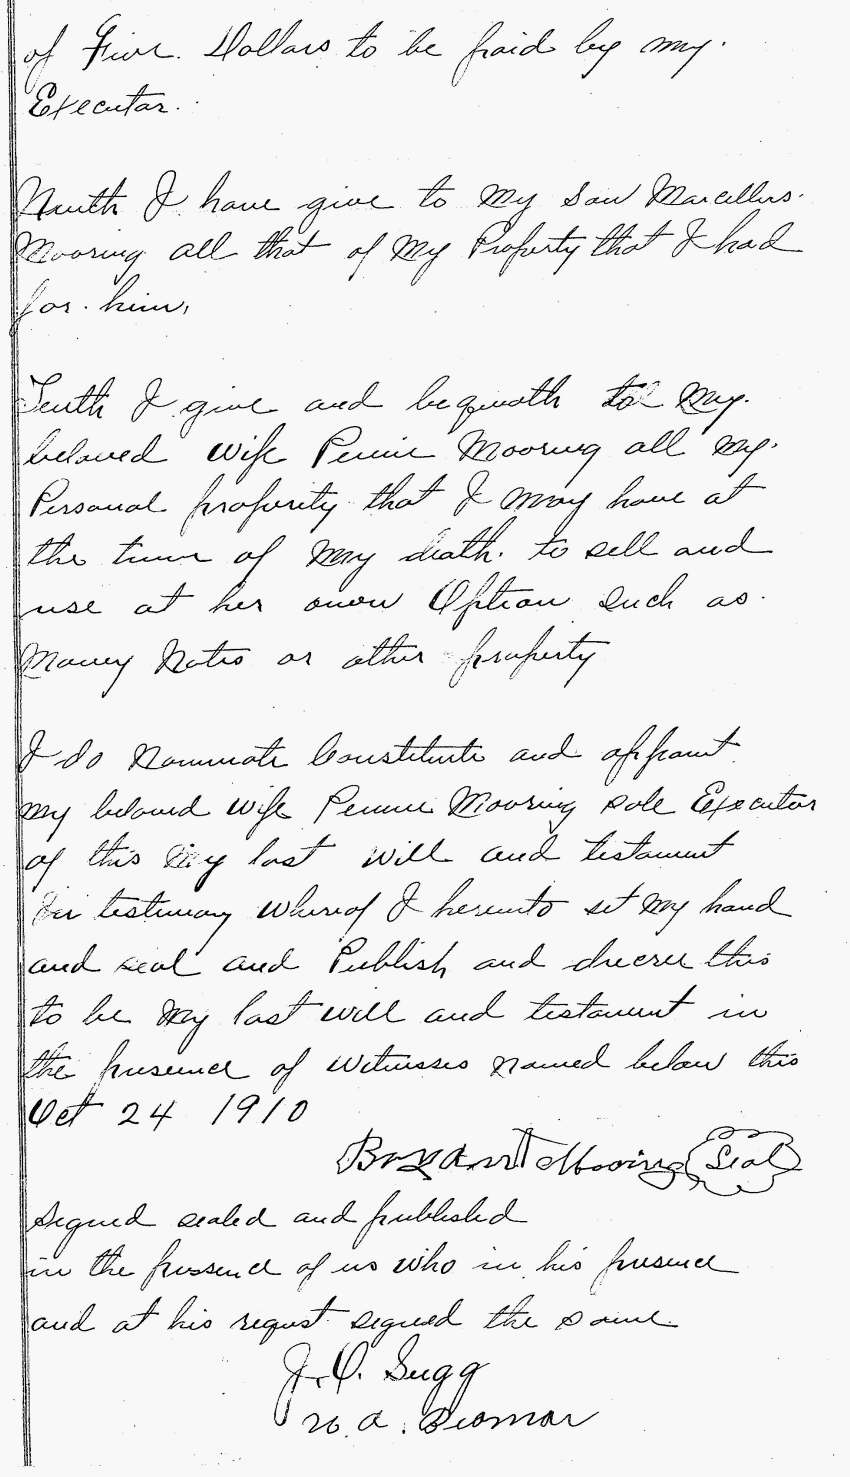 of Five Dollars to be paid by my
Executor.
Nineth I have give to My Son Marcellus
Mooring all that of My Property that I had
for him,
Tenth I give and bequeath to My
beloved wife Pennie Mooring all my
Personal property that I may have at
the time of My death. to sell and
use at her own Option such as
Money Notes or other property
I do Nominate Constitute and appoint
My beloved wife Pennie Mooring sole Executor
of this My last will and testament
In testimony whereof I hereunto set My hand
and seal and Publish and decree this
to be My last will and testament in
the presence of Witnesses named below this
Oct 24 1910
Mooring Seal
Signed sealed and published
in the pressence of us who in his presence
and at his request signed the same
J. O. Sugg
A.